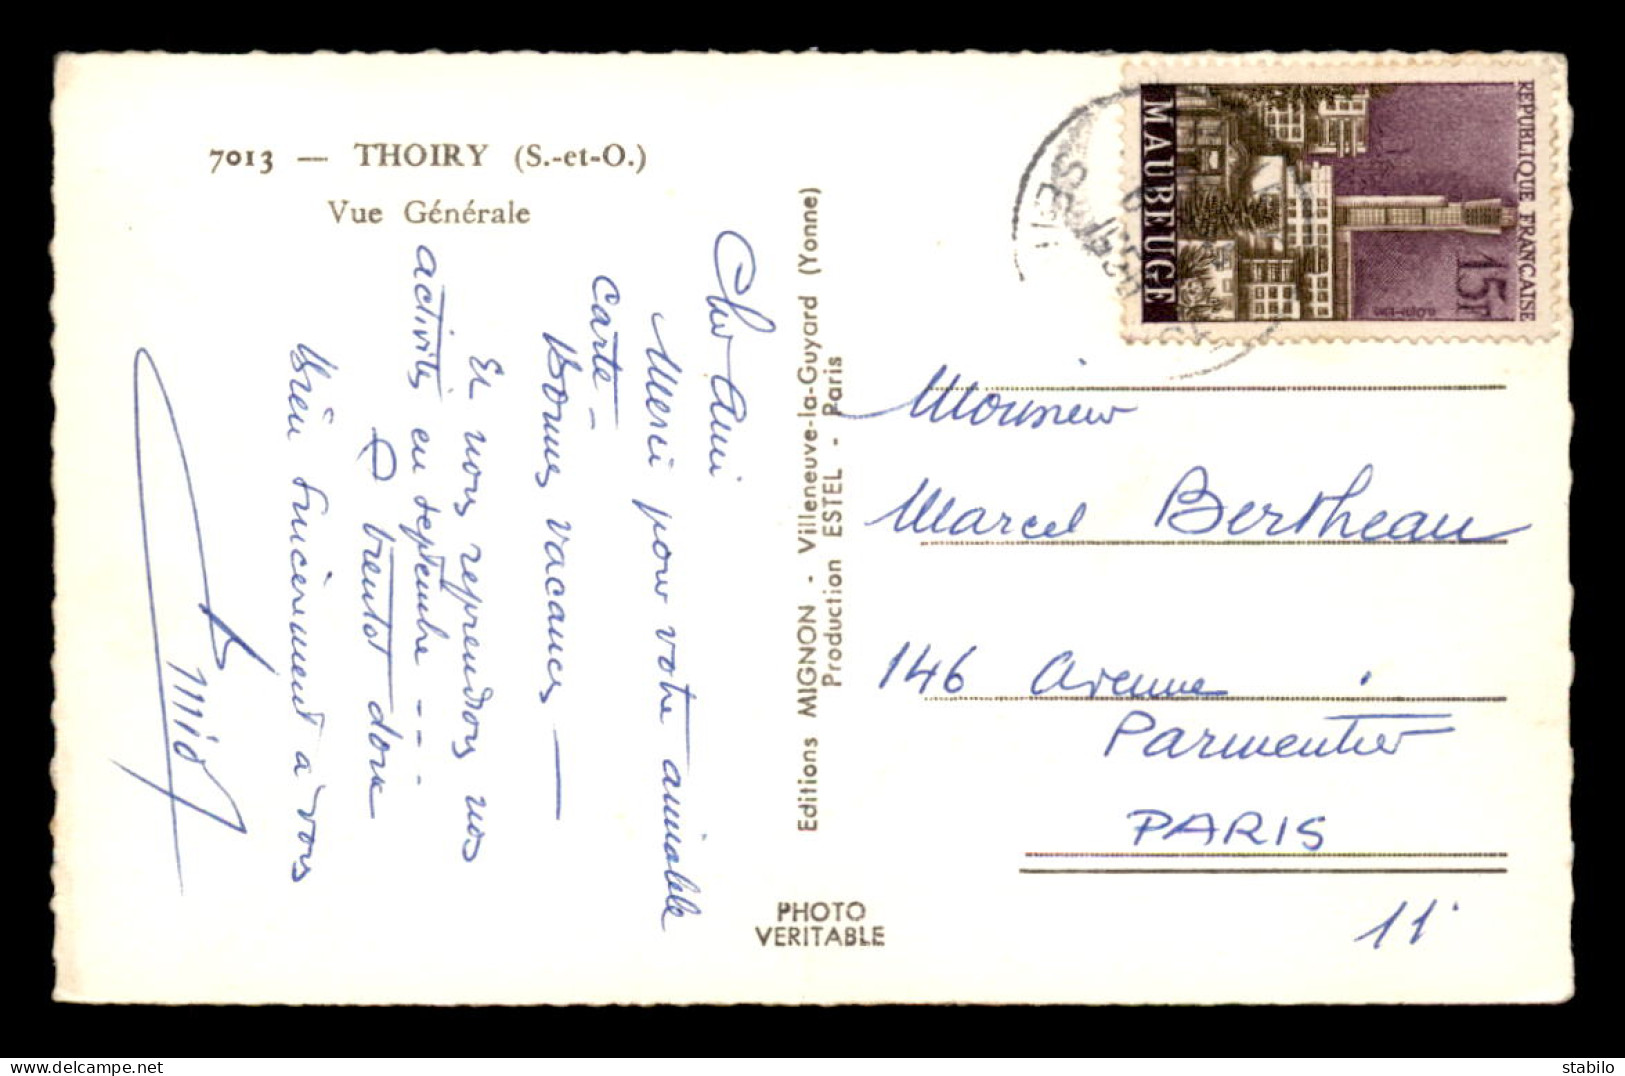 7013 — THOIRY (S.-et-O.)
Vue Générale
Cher Ami
Merci pour votre aimable
carte -
Bonnes vacances —
Et nous reprendrons nos
activités en septembre ---
A bientôt donc
Bien sincèrement à vous
Editions MIGNON - Villeneuve-la-Guyard (Yonne)
Production ESTEL - Paris
PHOTO
VERITABLE
REPUBLIQUE FRANÇAISE
15F
MAUBEUGE
Monsieur
Marcel Bertheau
146 Avenue
Parmentier
PARIS
11
delcampe.net
stabilo